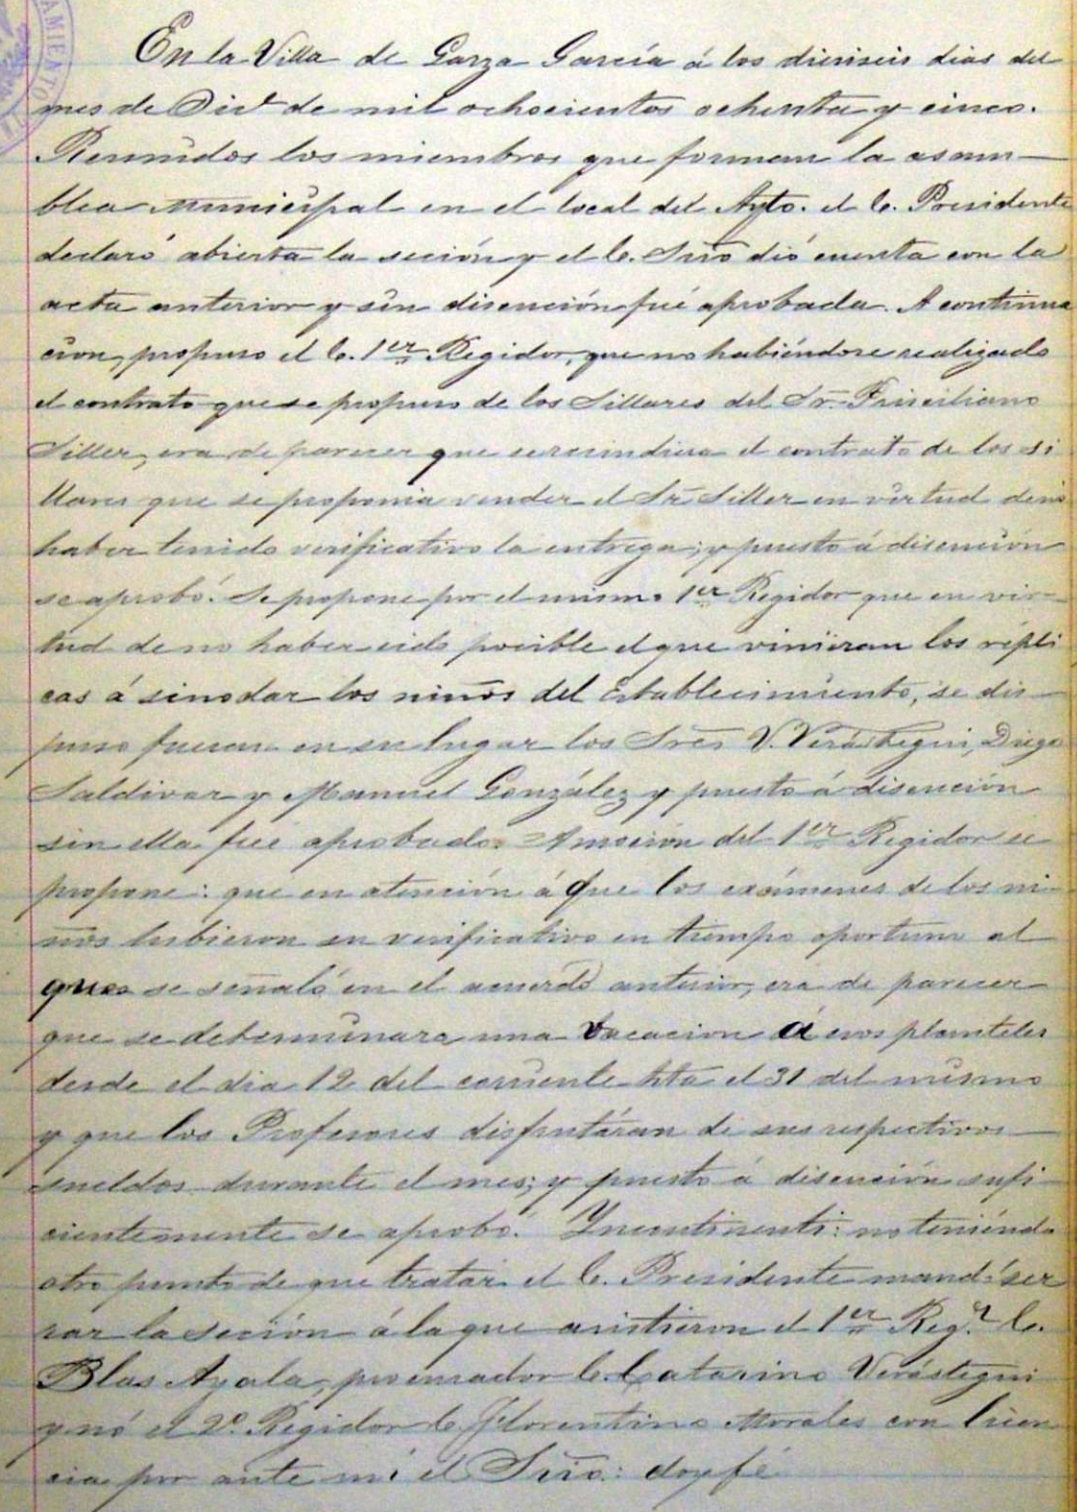 AMIENTO
En la Villa de Garza García á los dieriseis dias del
mes de Dice de mil ochocientos ochenta y cinco.
Reunidos los miembros que forman la asam-
blea municipal en el local del Ayto. el C. Presidente
declaró abierta la seción y el C. Srio dió cuenta con la
acta anterior y sin discución fué aprobada. A continua
cion, propuso el C. 1er Regidor, que no habiéndose realizado
el contrato que se propuso de los Sillares del Sr. Prisciliano
Siller, era de parecer que se rescindiera el contrato de los si
llares que se proponia vender el Sr. Siller en virtud de no
haber tenido verificativo la entrega; y puesto á discución
se aprobó. Se propone por el mismo 1er Regidor que en vir-
tud de no haber sido posible el que vinieran los repli
cas á sinodar los niños del establecimiento, se dis-
puso fueran en su lugar los Sres V. Verástegui, Diego
Saldivar y Manuel González y puesto á discución
sin ella fué aprobado. A moción del 1er Regidor se
propone: que en atención á que los exámenes de los ni-
ños tubieron su verificativo en tiempo oportuno al
que se señaló en el acuerdo anterior, era de parecer
que se determinara una vacacion á esos planteles
desde el dia 12 del corriente hta el 31 del mismo
y que los Profesores disfrutáran de sus respectivos
sueldos durante el mes; y puesto á discución sufi
cientemente se aprobó. Incontinenti: no teniendo
otro punto de que tratar el C. Presidente mandó ser
rar la seción á la que asistieron el 1er Regr C.
Blas Ayala, procurador C. Catarino Verástegui
y nó el 2o Regidor C. Florentino Morales con licen
cia por ante mi el Srio: doy fé